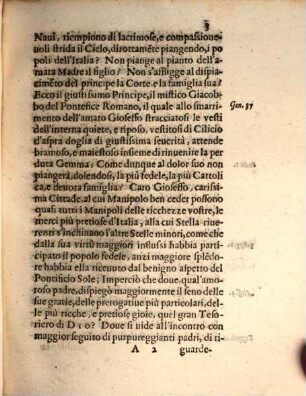 3
Naui, riempiono di lacrimose, e compassione-
uoli strida il Cielo, dirottamẽte piangendo, i po
poli dell'Italia? Non piange al pianto dell'a-
mata Madre il figlio? Non s'affligge al dispia-
cimẽto del principe la Corte, e la famiglia sua?
Ecco il giustissimo Principe, il mistico Giacob-
bo del Pontefice Romano, il quale allo smarri-
Gen. 37
mento dell'amato Gioseffo stracciatosi le vesti
dell'interna quiete, e riposo, vestitosi di Cilicio
d'aspra doglia di giustissima seuerità, attende
bramoso, e maiestoso insieme di rinuenir la per
duta Gemma; Come dunque al dolor suo non
piangerà, dolendosi, la più fedele, la più Cattoli
ca, e deuota famiglia? Caro Gioseffo, carissi-
ma Cittade, al cui Manipolo ben ceder possono
quasi tutti i Manipoli delle ricchezze vostre, le
merci più pretiose d'Italia, alla cui Stella riue-
renti s'inchinano l'altre Stelle minori, come che
dalla sua virtù maggiori influssi habbia partici-
pato il popolo fedele, anzi maggiore splẽdo-
re habbia ella riceuuto dal benigno aspetto del
Pontificio Sole; Imperciò che doue, qual'amo-
roso padre, dispiegò maggiormente il seno delle
sue gratie, delle prerogatiue più particolari, del-
le più ricche, e pretiose gioie, quel gran Teso-
riero di DIO? Doue si uide all'incontro con
maggior seguito di purpureggianti padri, di ri-
A 2 guarde-